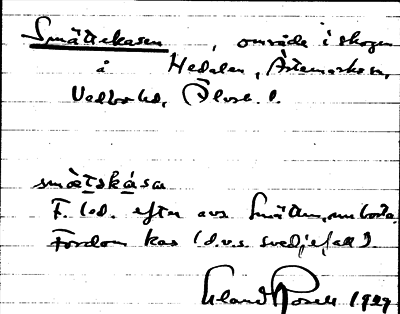 Smättekasen, område i skogen
å Hedalen, Ärtemarks sn,
Vedbo hd, Älvsb. l.
smätskåsa
F. led. efter avs Smätten, numboda.
Fordom kas (d.v.s. svedjefall)
Erland Rosell 1929